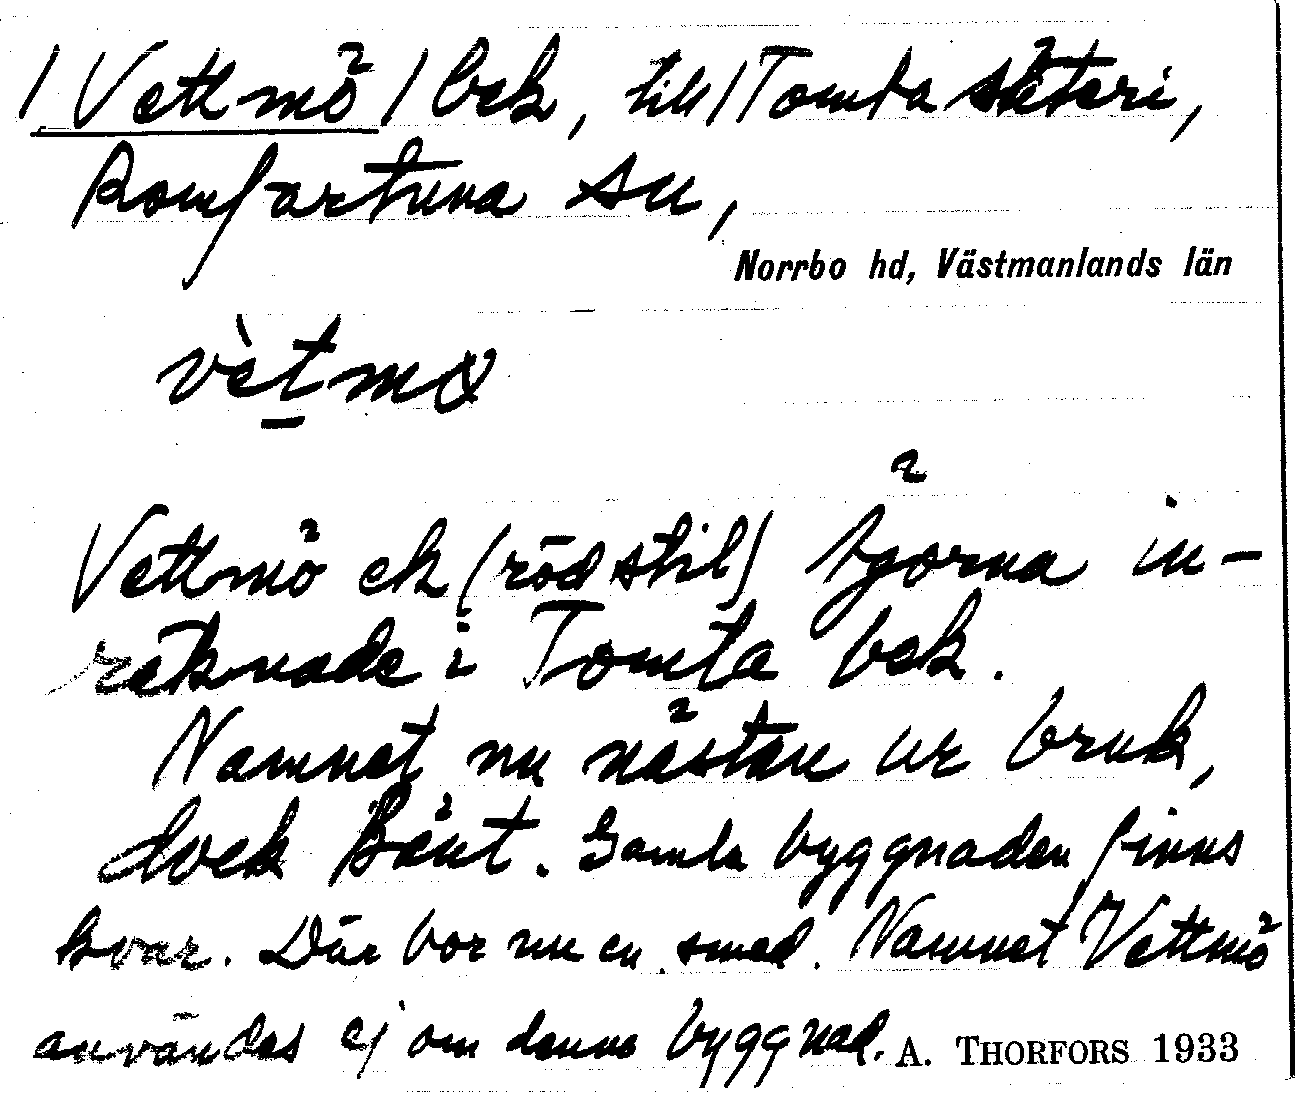 /Vettmö/ bek, till/Tomta säteri,
Romfartuna sn,
Norrbo hd, Västmanlands län
vètmø
Vettmö ek (röd stil) torna in-
räknade i Tomta bek.
Namnet nu nästan ur bruk,
dock känt. Gamla byggnaden finns
kvar. Där bor nu en smed. Namnet Vettmö
användes ej om denna byggnad. A. THORFORS 1933